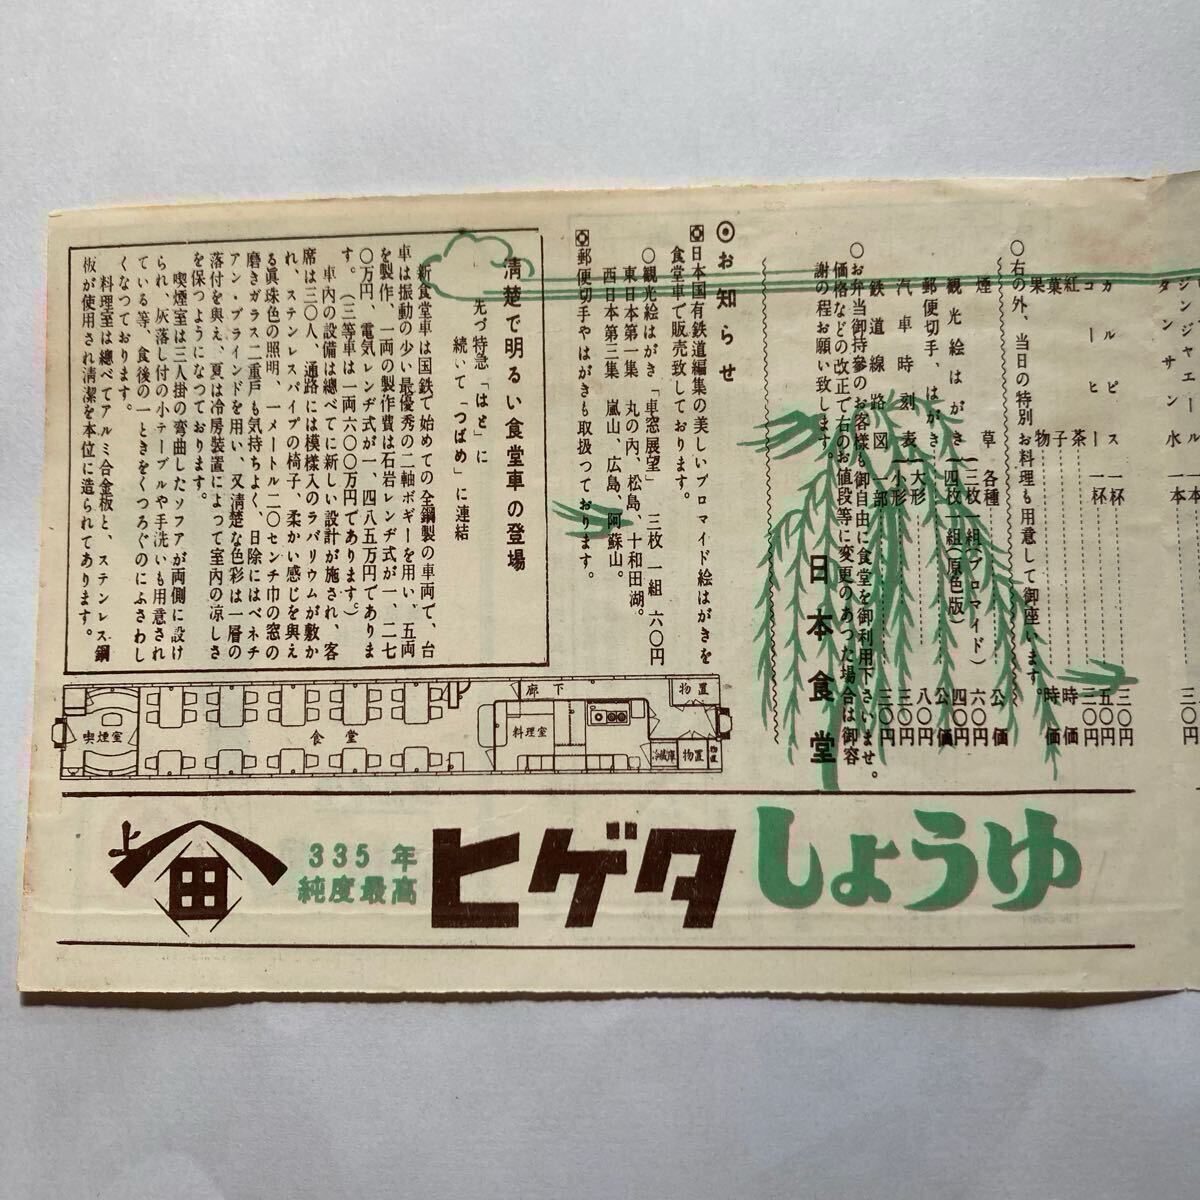 ジンジャエール 一本
タンサン水 一本 三〇円
カルピス 一杯 三〇円
コーヒー 一杯 五〇円
紅茶 三〇円
菓子 時価
果物 時価
〇右の外、当日の特別お料理も用意して御座います。
煙草 各種 公価
観光絵はがき 三枚一組(ブロマイド) 六〇円
四枚一組(原色版) 四〇円
郵便切手、はがき 公価
汽車時刻表 大形 八〇円
小形 三〇円
鉄道線路図 一部 三〇円
〇お弁当御持參のお客様も御自由に食堂を御利用下さいませ。
価格などの改正で右のお値段等に変更のあつた場合は御容
謝の程お願い致します。
日本食堂
お知らせ
日本国有鉄道編集の美しいブロマイド絵はがきを
食堂車で販売致しております。
〇観光絵はがき「車窓展望」 三枚一組 六〇円
東日本第一集 丸の内、松島、十和田湖。
西日本第三集 嵐山、広島、阿蘇山。
郵便切手やはがきも取扱つております。
清楚で明るい食堂車の登場
先づ特急「はと」に
続いて「つばめ」に連結
新食堂車は国鉄で始めての全鋼製の車両で、台
車は振動の少い最優秀の二軸ボギーを用い、五両
を製作、一両の製作費は石岩レンヂ式が一、二七
〇万円、電気レンヂ式が一、四八五万円でありま
す。(三等車は一両六〇〇万円であります。)
車内の設備は總べてに新しい設計が施され、客
席は三〇人、通路には模様入のラバリウムが敷か
れ、ステンレスパイプの椅子、柔かい感じを與え
る眞珠色の照明、一メートル二〇センチ巾の窓の
磨きガラス二重戸も気持ちよく、日除にはベネチ
アン・ブラインドを用い、又清楚な色彩は一層の
落付を與え、夏は冷房装置によつて室内の凉しさ
を保つようになつております。
喫煙室は三人掛の弯曲したソフアが両側に設け
られ、灰落し付の小テーブルや手洗いも用意され
ている等、食後の一ときをくつろぐのにふさわし
くなつております。
料理室は總べてアルミ合金板と、ステンレス鋼
板が使用され清潔を本位に造られてあります。
喫煙室
食堂
廊下
料理室
物置
冷蔵庫
物置
物置
上
田
335年
純度最高
ヒゲタしょうゆ